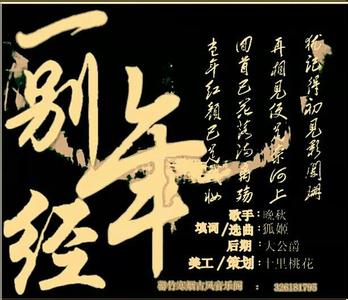 一别经年
犹记得初见影阑珊
再相见便是奈何上
回首已花落满殇
当年红颜已妆
歌手：晚秋
填词/选曲：狐姬
后期：大公爵
美工/策划：十里桃花
竹寒烟古风音乐阁 ： 326181795